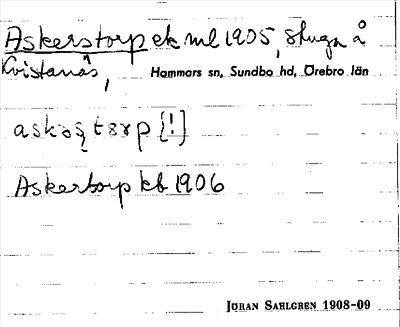 Askerstorp ek ml 1905, stuga å
Kvistanäs, Hammars sn, Sundbo hd, Örebro län
[!]
Askertorp kb 1906
JÖRAN SAHLGREN 1908-09